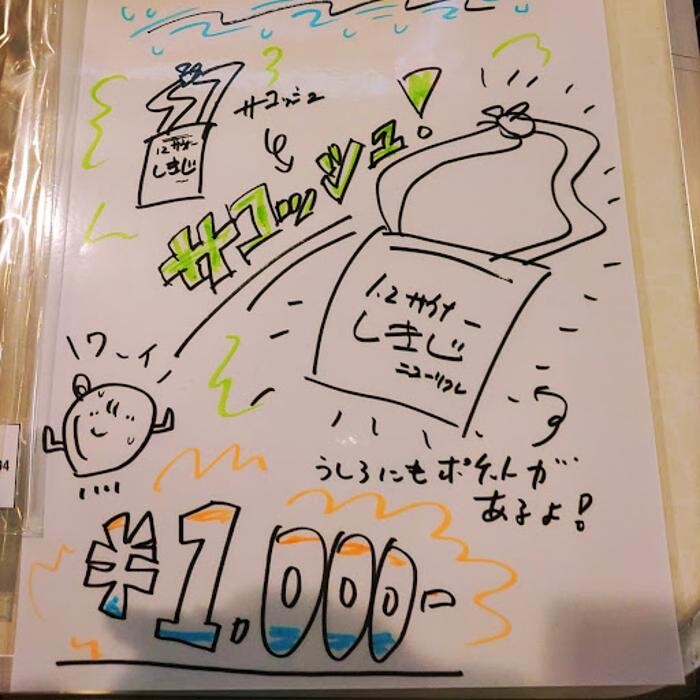 サコッシュ
1.2サイナー
しきじ
サコッシュ!
1.2サイナー
しきじ
ニューリフレ
ワーイ
うしろにもポケットが…
あるよ!
¥1.000-